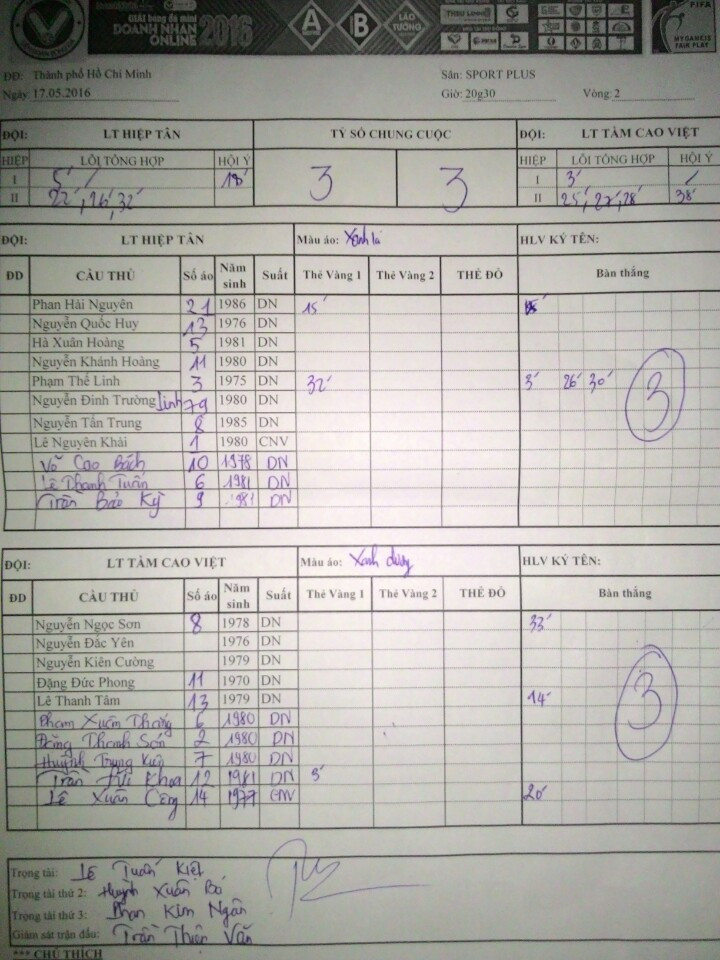 GIẢI bóng đá mini
DOANH NHÂN
ONLINE 2016
A B LÁO TƯỞNG
FIFA
MY GAME IS FAIR PLAY
ĐĐ: Thành phố Hồ Chí Minh Sân: SPORT PLUS
Ngày 17.05.2016 Giờ: 20g30 Vòng: 2
ĐỘI: LT HIỆP TÂN TỶ SỐ CHUNG CUỘC ĐỘI: LT TÂM CAO VIỆT
HIỆP LỖI TỔNG HỢP HỘI Ý 3 3 HIỆP LỖI TỔNG HỢP HỘI Ý
I 5' / 18' I 3' /
II 22', 26', 32' II 25', 27', 28' 38'
ĐỘI: LT HIỆP TÂN Màu áo: Xanh lá HLV KÝ TÊN:
ĐD CẦU THỦ Số áo Năm sinh Suất Thẻ Vàng 1 Thẻ Vàng 2 THẺ ĐỎ Bàn thắng
Phan Hải Nguyên 21 1986 DN 15'
Nguyễn Quốc Huy 13 1976 DN
Hà Xuân Hoàng 5 1981 DN
Nguyễn Khánh Hoàng 11 1980 DN
Phạm Thế Linh 3 1975 DN 32' 3' 26' 30' 3
Nguyễn Đình Trường Linh 79 1980 DN
Nguyễn Tấn Trung 8 1985 DN
Lê Nguyên Khải 1 1980 CNV
Võ Cao Bách 10 1978 DN
Lê Thanh Tuấn 6 1981 DN
Trần Bảo Kỳ 9 1981 DN
ĐỘI: LT TÂM CAO VIỆT Màu áo: Xanh dương HLV KÝ TÊN:
ĐD CẦU THỦ Số áo Năm sinh Suất Thẻ Vàng 1 Thẻ Vàng 2 THẺ ĐỎ Bàn thắng
Nguyễn Ngọc Sơn 8 1978 DN 33'
Nguyễn Đắc Yên 1976 DN
Nguyễn Kiên Cường 1979 DN
Đặng Đức Phong 11 1970 DN
Lê Thanh Tâm 13 1979 DN 14' 3
Phạm Xuân Thắng 6 1980 DN
Đặng Thanh Sơn 2 1980 DN
Huỳnh Trung Kiên 7 1980 DN
Trần Khoa 12 1981 DN 3'
Lê Xuân Công 14 1977 CNV 20'
Trọng tài: Lê Tuấn Kiệt
Trọng tài thứ 2: Huỳnh Xuân Bá
Trọng tài thứ 3: Phan Kim Ngân
Giám sát trận đấu: Trần Thiện Văn
*** CHÚ THÍCH